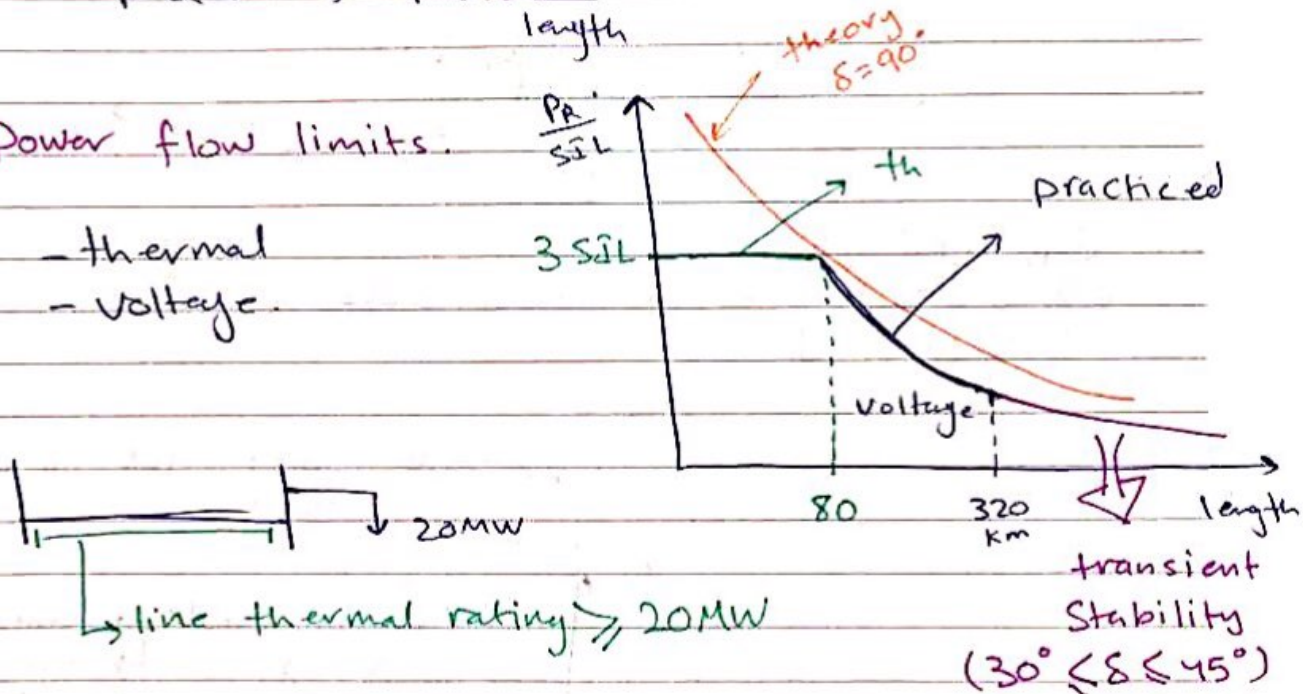 length
theory.
δ=90
Power flow limits.
PR
SIL
th
practiced
- thermal
3 SIL
- voltage.
voltage
80
320
km
length
20MW
transient
↳ line thermal rating ≥ 20MW
Stability
(30° ≤ δ ≤ 45°)